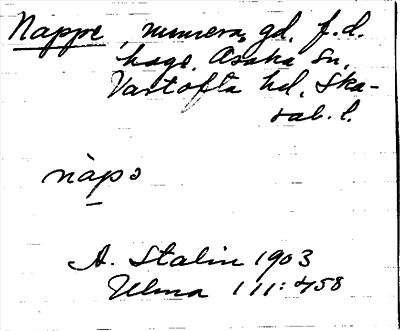 Nappe, numera, gd, f.d.
hage. Åsaka sn,
Vartofta hd, Ska-
rab. l.
nàpə
A. Stalin 1903
Ulma 111:458